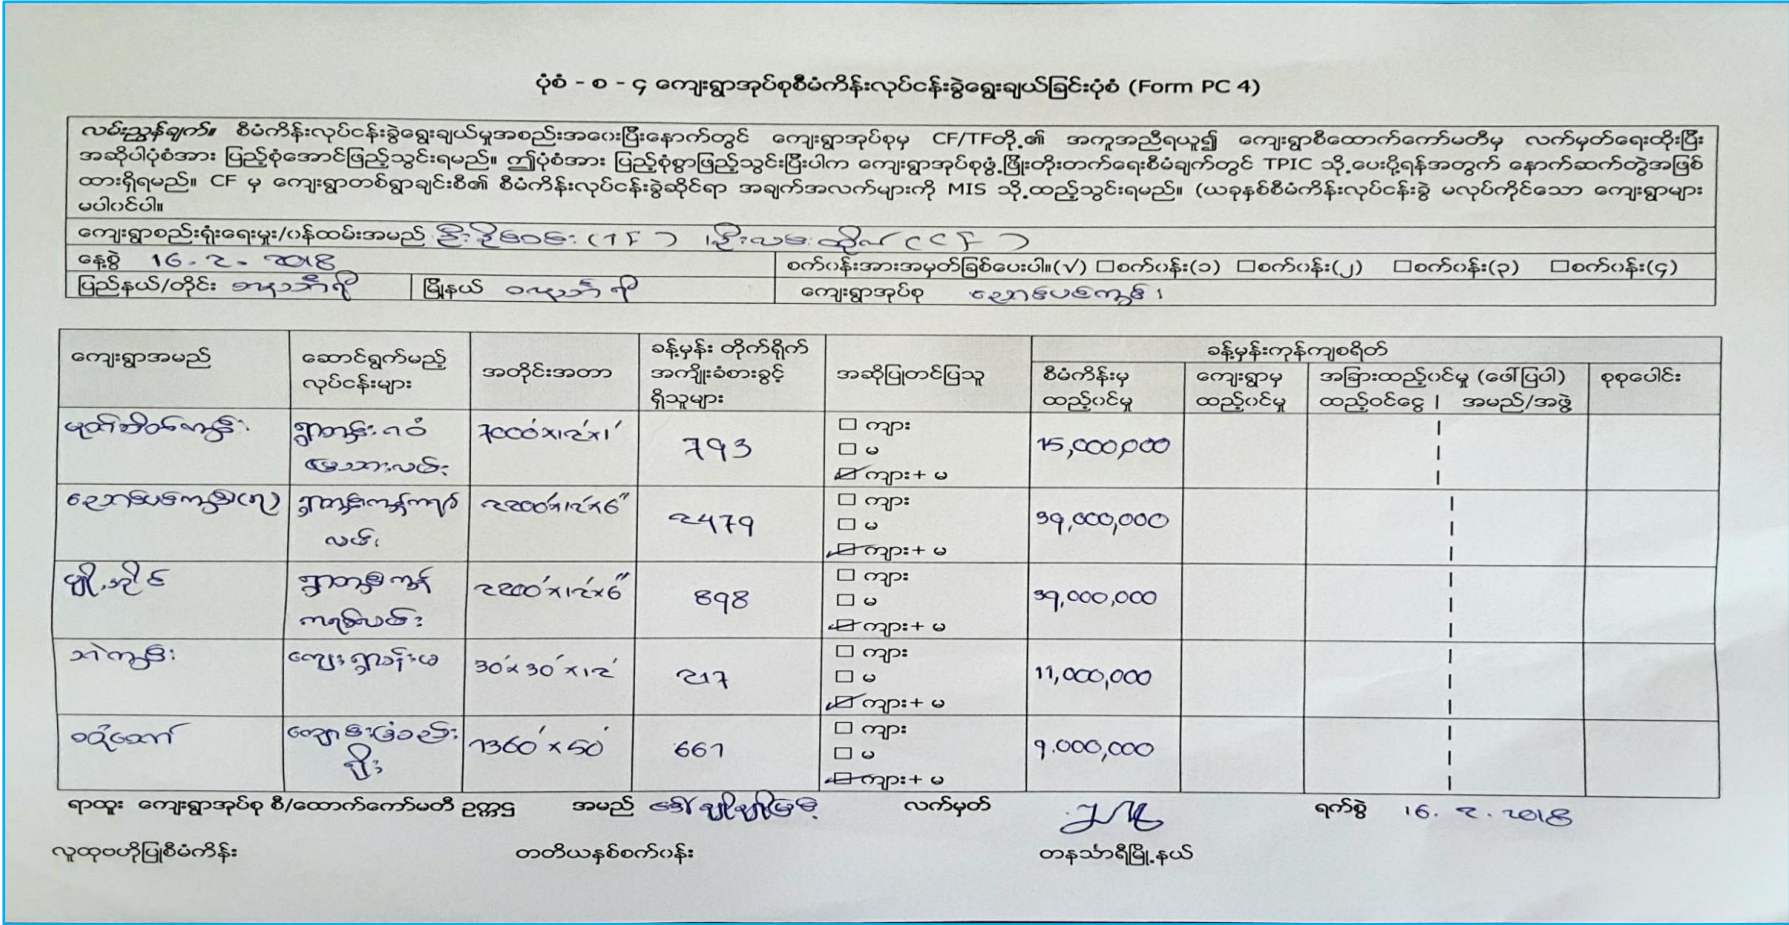 ပုံစံ - စ - ၄ ကျေးရွာအုပ်စုစီမံကိန်းလုပ်ငန်းခွဲရွေးချယ်ခြင်းပုံစံ (Form PC 4)
လမ်းညွှန်ချက်။ စီမံကိန်းလုပ်ငန်းခွဲရွေးချယ်မှုအစည်းအဝေးပြီးနောက်တွင် ကျေးရွာအုပ်စုမှ CF/TFတို့၏ အကူအညီရယူ၍ ကျေးရွာစီထောက်ကော်မတီမှ လက်မှတ်ရေးထိုးပြီး
အဆိုပါပုံစံအား ပြည့်စုံအောင်ဖြည့်သွင်းရမည်။ ဤပုံစံအား ပြည့်စုံစွာဖြည့်သွင်းပြီးပါက ကျေးရွာအုပ်စုဖွံ့ဖြိုးတိုးတက်ရေးစီမံချက်တွင် TPIC သို့ပေးပို့ရန်အတွက် နောက်ဆက်တွဲအဖြစ်
ထားရှိရမည်။ CF မှ ကျေးရွာတစ်ရွာချင်းစီ၏ စီမံကိန်းလုပ်ငန်းခွဲဆိုင်ရာ အချက်အလက်များကို MIS သို့ထည့်သွင်းရမည်။ (ယခုနှစ်စီမံကိန်းလုပ်ငန်းခွဲ မလုပ်ကိုင်သော ကျေးရွာများ
မပါဝင်ပါ။
ကျေးရွာစည်းရုံးရေးမှူး/ဝန်ထမ်းအမည် (TF) (CF)
နေ့စွဲ 16.2.2018 စက်ဝန်းအားအမှတ်ခြစ်ပေးပါ။(√) ☐စက်ဝန်း(၁) ☐စက်ဝန်း(၂) ☐စက်ဝန်း(၃) ☐စက်ဝန်း(၄)
ပြည်နယ်/တိုင်း တနင်္သာရီ မြို့နယ် တနင်္သာရီ ကျေးရွာအုပ်စု ညောင်ပင်ကွင်း
ကျေးရွာအမည် ဆောင်ရွက်မည့် လုပ်ငန်းများ အတိုင်းအတာ ခန့်မှန်း တိုက်ရိုက် အကျိုးခံစားခွင့် ရှိသူများ အဆိုပြုတင်ပြသူ ခန့်မှန်းကုန်ကျစရိတ်
စီမံကိန်းမှ ထည့်ဝင်မှု ကျေးရွာမှ ထည့်ဝင်မှု အခြားထည့်ဝင်မှု (ဖော်ပြပါ) ထည့်ဝင်ငွေ | အမည်/အဖွဲ့ စုစုပေါင်း
7000'x12'x1' 793 ☐ ကျား ☐ မ ☑ ကျား+ မ 15,000,000
ညောင်ပင်ကွင်း 2200'x12'x6" 2479 ☐ ကျား ☐ မ ☑ ကျား+ မ 39,000,000
2200'x12'x6" 898 ☐ ကျား ☐ မ ☑ ကျား+ မ 39,000,000
သဲကွင်း 30'x30'x12' 217 ☐ ကျား ☐ မ ☑ ကျား+ မ 11,000,000
1360'x50' 661 ☐ ကျား ☐ မ ☑ ကျား+ မ 9.000,000
ရာထူး ကျေးရွာအုပ်စု စီ/ထောက်ကော်မတီ ဥက္ကဌ အမည် လက်မှတ် ရက်စွဲ 16.2.2018
လူထုဗဟိုပြုစီမံကိန်း တတိယနှစ်စက်ဝန်း တနင်္သာရီမြို့နယ်